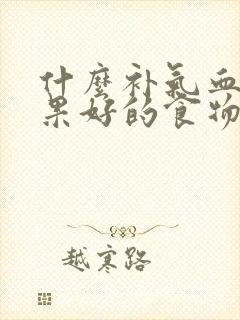 什麽补氣血
果好的食物
越寒路